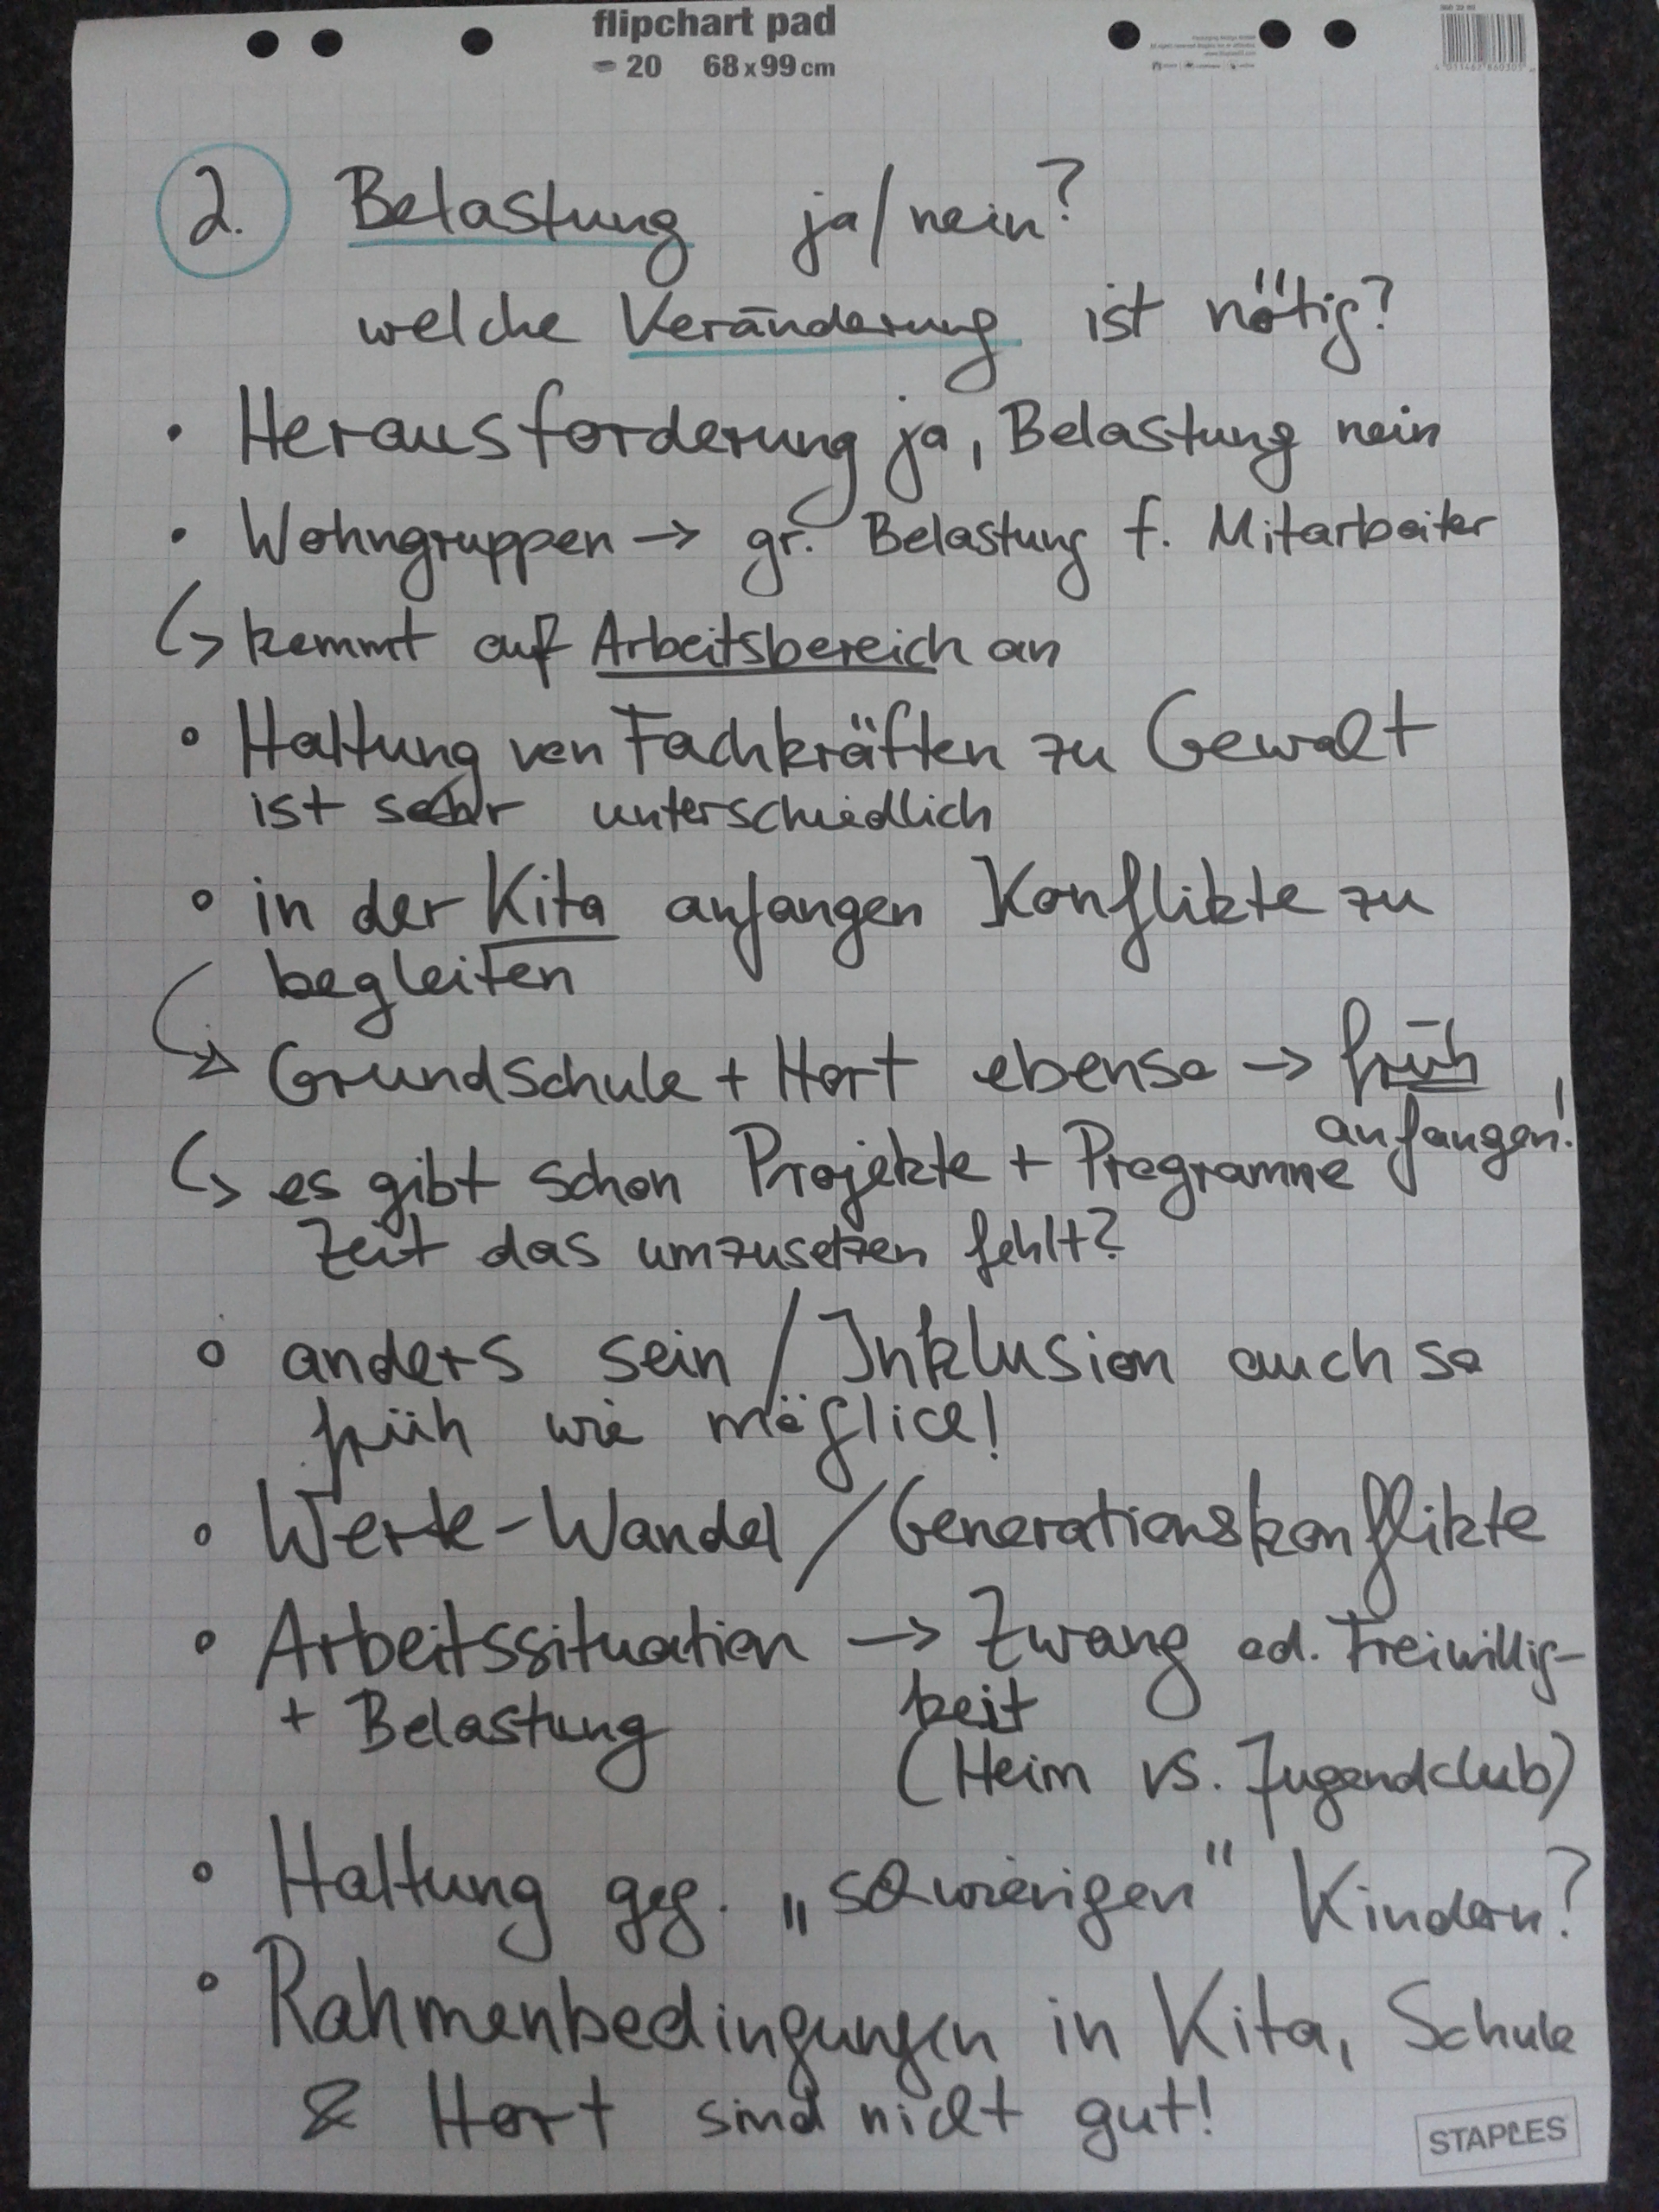 flipchart pad
20 68 x 99 cm
2. Belastung ja/nein?
welche Veränderung ist nötig?
• Herausforderung ja, Belastung nein
• Wohngruppen → gr. Belastung f. Mitarbeiter
↳ kommt auf Arbeitsbereich an
• Haltung von Fachkräften zu Gewalt
ist sehr unterschiedlich
• in der Kita anfangen Konflikte zu
begleiten
↳ Grundschule + Hort ebenso → früh
anfangen!
↳ es gibt schon Projekte + Programme
Zeit das umzusetzen fehlt?
• anders sein / Inklusion auch so
früh wie möglich!
• Werte-Wandel / Generationskonflikte
• Arbeitssituation → Zwang od. Freiwillig-
+ Belastung keit
(Heim vs. Jugendclub)
• Haltung geg. „schwierigen" Kindern?
• Rahmenbedingungen in Kita, Schule
& Hort sind nicht gut!
STAPLES